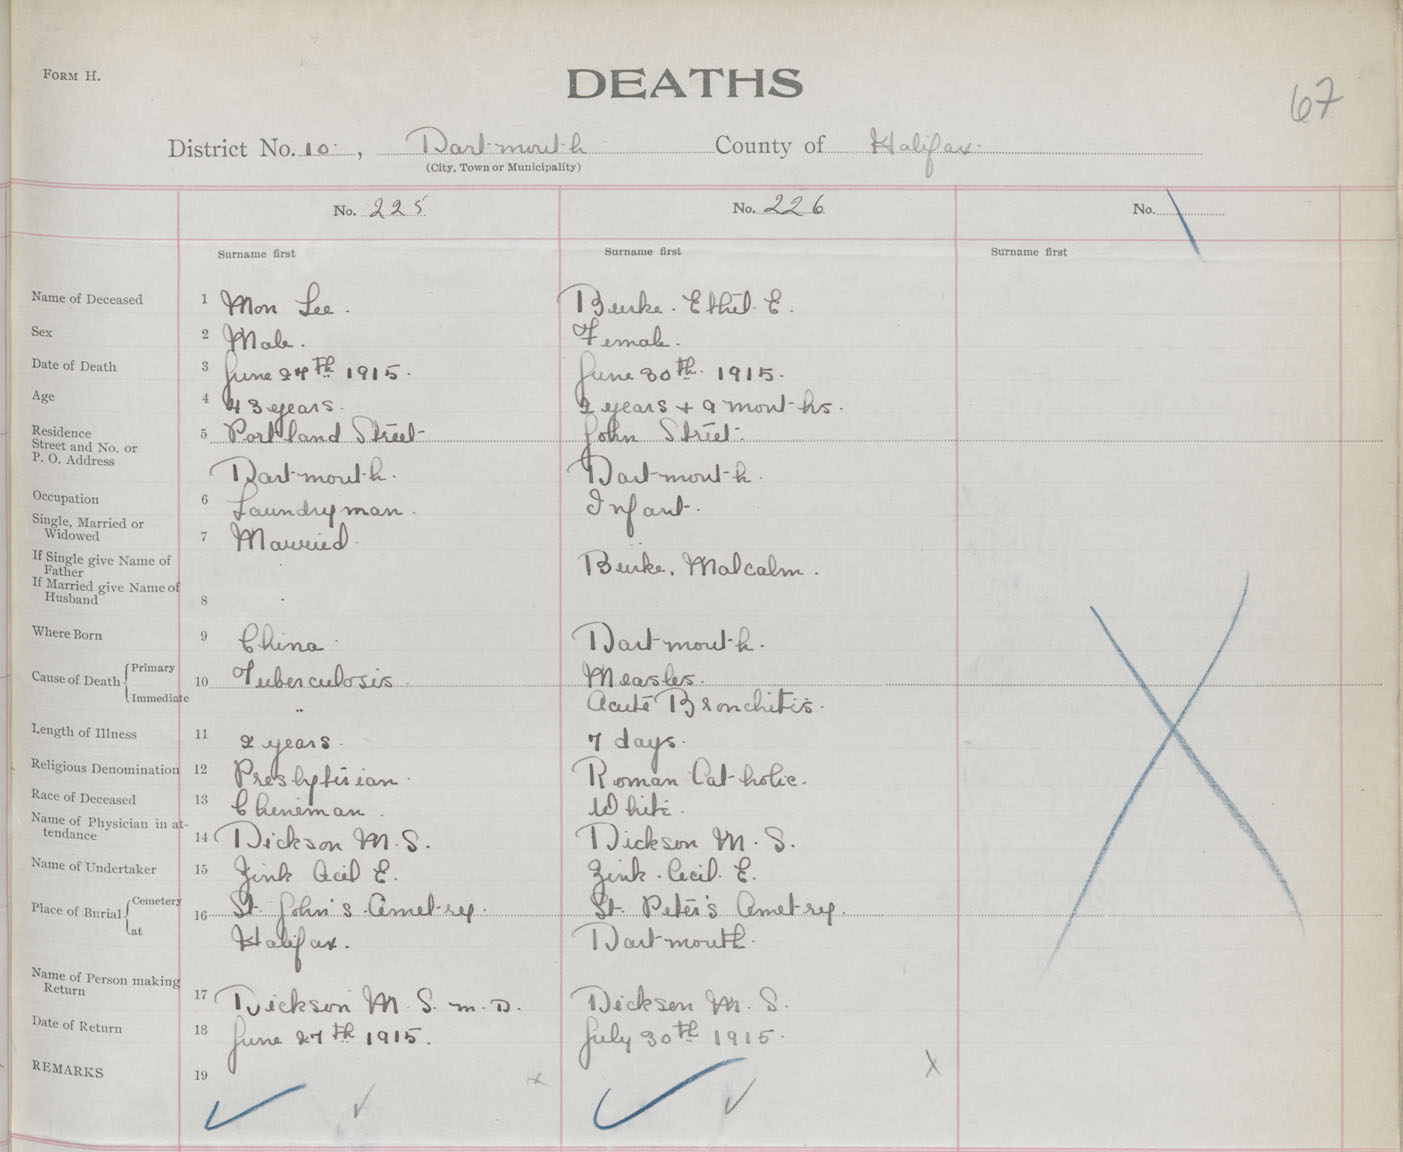 FORM H.
DEATHS
67
District No. 10. , Dartmouth County of Halifax.
(City, Town or Municipality)
No. 225 No. 226 No.
Surname first Surname first Surname first
Name of Deceased 1 Mon Lee. Burke. Ethel. E.
Sex 2 Male. Female.
Date of Death 3 June 27th 1915. June 30th. 1915.
Age 4 43 years. 2 years + 9 months.
Residence 5 Portland Street John Street.
Street and No. or
P. O. Address Dartmouth. Dartmouth.
Occupation 6 Laundryman. Infant.
Single, Married or
Widowed 7 Married.
If Single give Name of
Father Burke, Malcalm.
If Married give Name of
Husband 8
Where Born 9 China. Dartmouth.
Cause of Death Primary 10 Tuberculosis. Measles.
Immediate " Acute Bronchitis.
Length of Illness 11 2 years. 7 days.
Religious Denomination 12 Presbyterian. Roman Catholic.
Race of Deceased 13 Chineman. White.
Name of Physician in at-
tendance 14 Dickson M. S. Dickson M. S.
Name of Undertaker 15 Zink Cecil E. Zink. Cecil. E.
Place of Burial Cemetery 16 St. John's Cemetrey. St. Peter's Cemetrey.
at Halifax. Dartmouth.
Name of Person making
Return 17 Dickson M. S. M. D. Dickson M. S.
Date of Return 18 June 27th 1915. July 30th 1915.
REMARKS 19